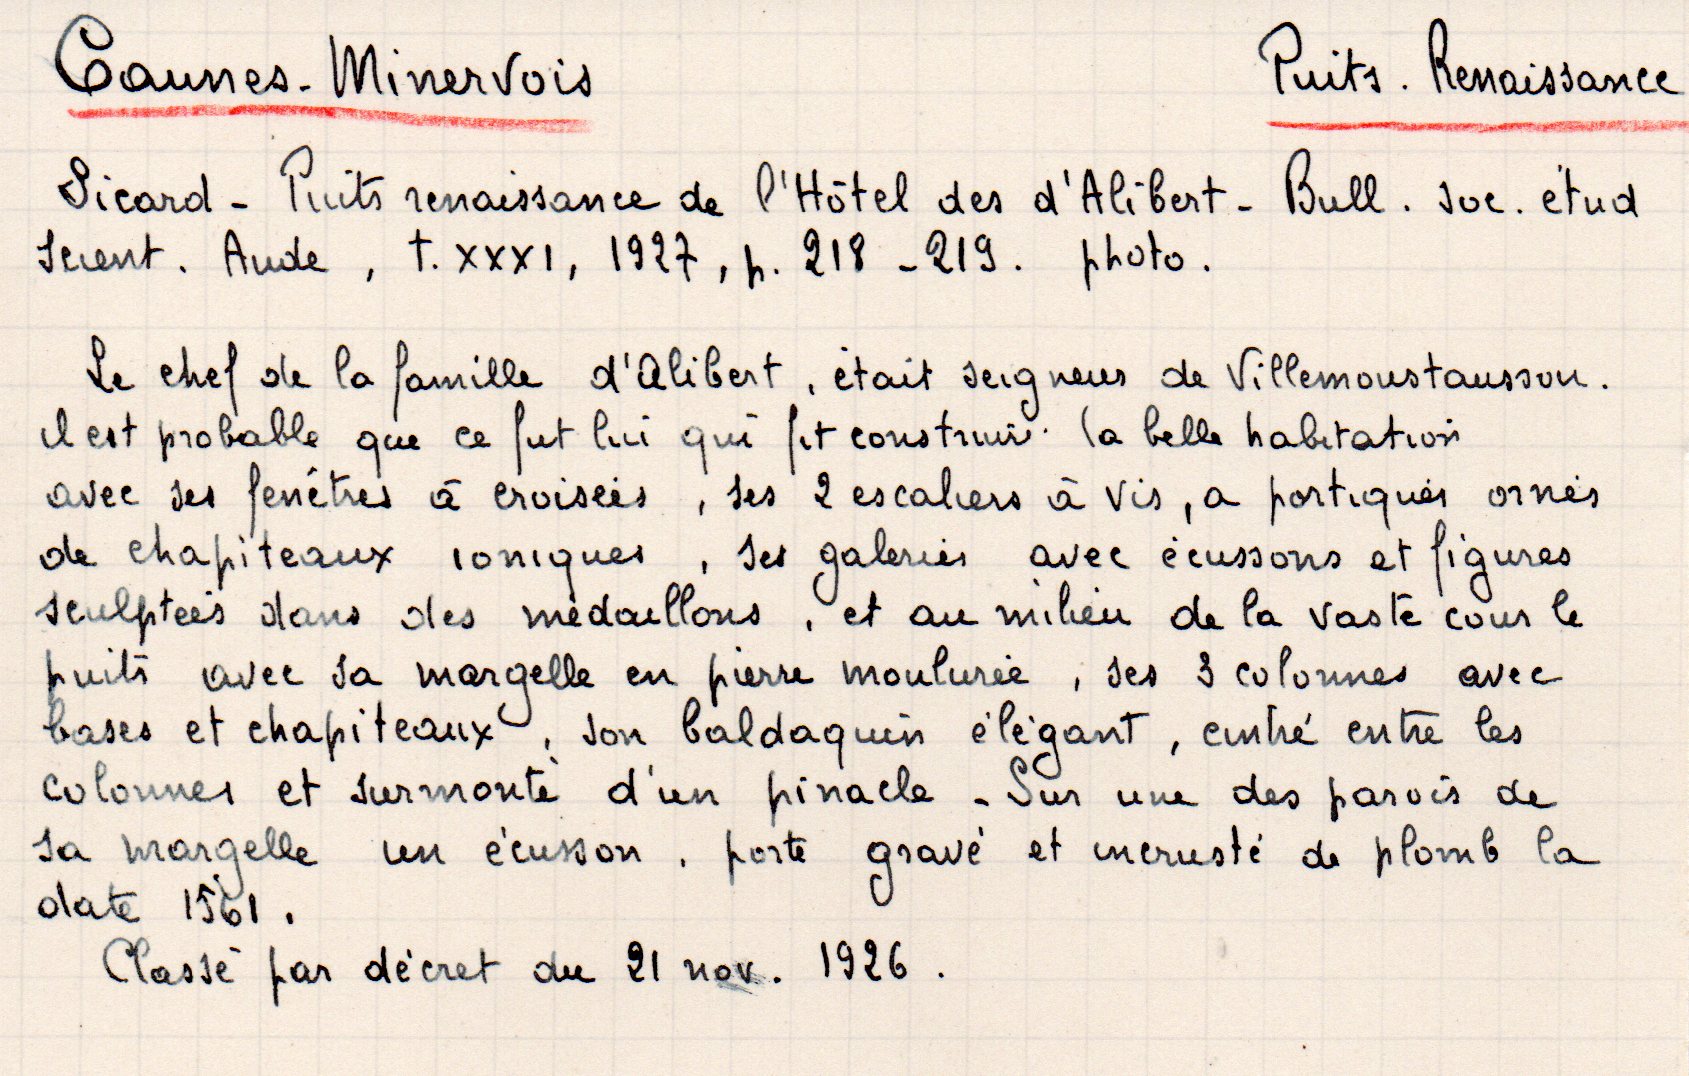 Caunes-Minervois
Puits. Renaissance
Sicard - Puits renaissance de l'Hôtel des d'Alibert - Bull. soc. étud
scient. Aude, t. XXXI, 1927, p. 218-219. photo.
Le chef de la famille d'Alibert, était seigneur de Villemoustausson.
il est probable que ce fut lui qui fit construire la belle habitation
avec ses fenêtres à croisées, ses 2 escaliers à vis, a portiques ornés
de chapiteaux ioniques, ses galeries avec écussons et figures
sculptées dans des médaillons, et au milieu de la vaste cour le
puits avec sa margelle en pierre moulurée, ses 3 colonnes avec
bases et chapiteaux, son baldaquin élégant, cintré entre les
colonnes et surmonté d'un pinacle - Sur une des parois de
sa margelle un écusson, porte gravé et incrusté de plomb la
date 1561.
Classé par décret du 21 nov. 1926.